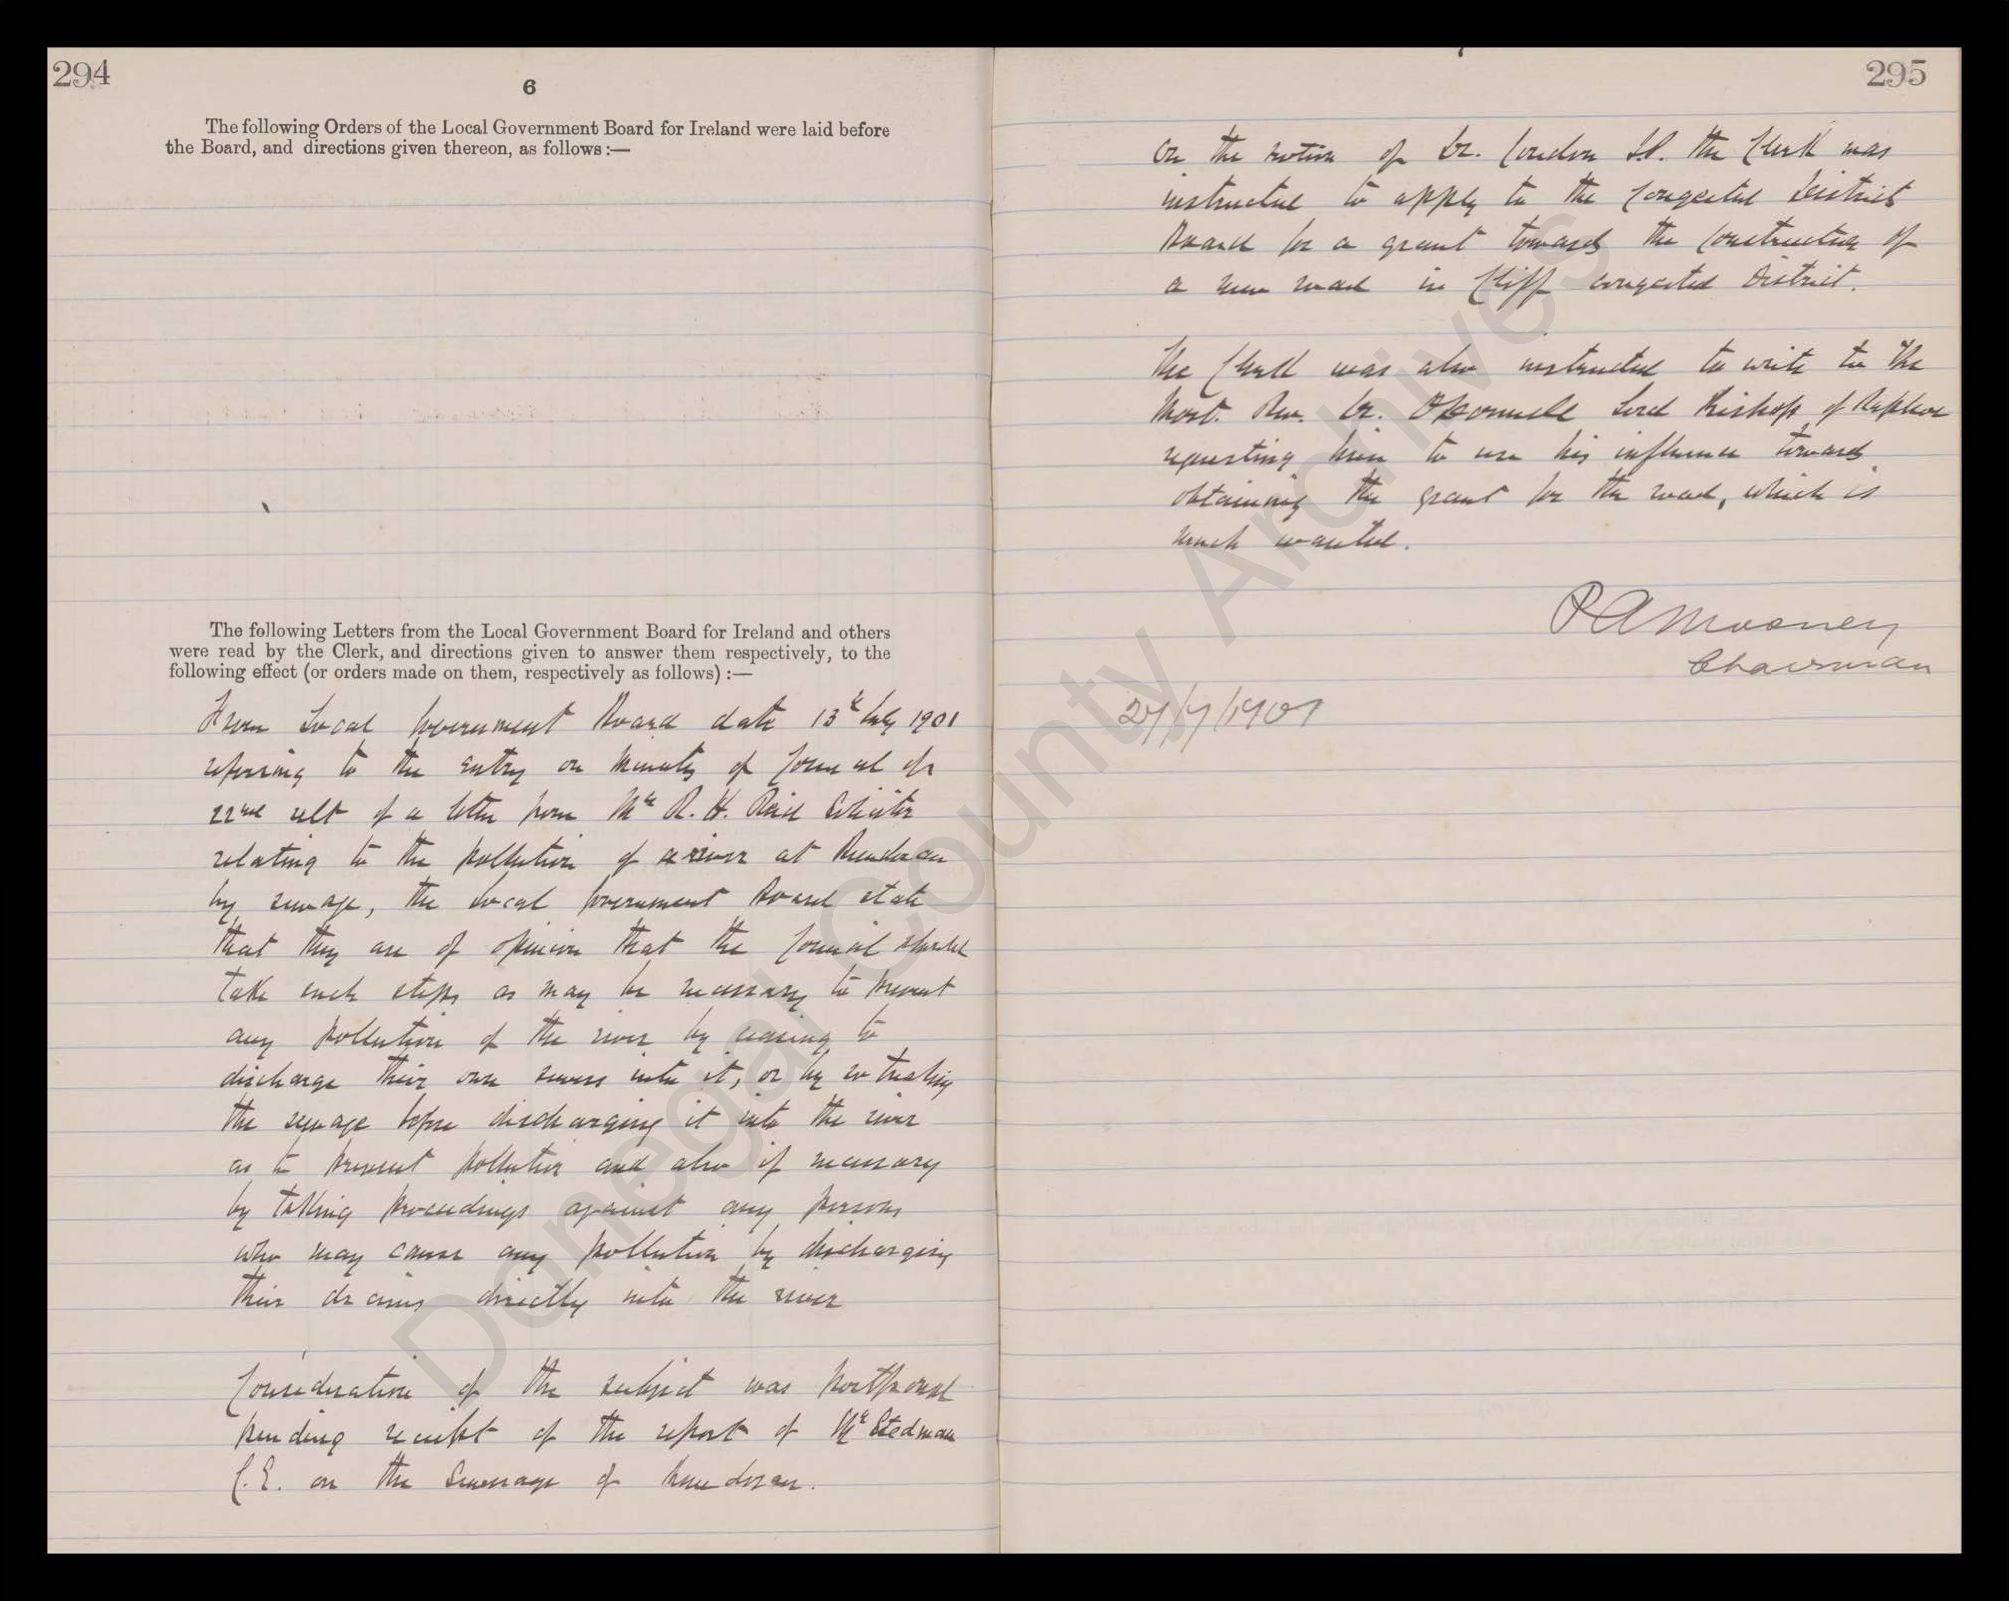 294
6
The following Orders of the Local Government Board for Ireland were laid before
the Board, and directions given thereon, as follows :—
The following Letters from the Local Government Board for Ireland and others
were read by the Clerk, and directions given to answer them respectively, to the
following effect (or orders made on them, respectively as follows) :—
From Local Government Board date 13th July 1901
referring to the entry on minutes of Council of
22nd ult of a letter from Mr R. H. Reid Solicitor
relating to the pollution of a river at Bundoran
by sewage, the Local Government Board state
that they are of opinion that the Council should
take such steps as may be necessary to prevent
any pollution of the river by ceasing to
discharge their own sewers into it, or by so treating
the sewage before discharging it into the river
as to prevent pollution and also if necessary
by taking proceedings against any persons
who may cause any pollution by discharging
their drains directly into the river
Consideration of the subject was postponed
pending receipt of the report of Mr Stedman
C.E. on the Sewerage of Bundoran.
295
On the motion of Dr. Condon J.P. the Clerk was
instructed to apply to the Congested Districts
Board for a grant towards the construction of
a new road in Cliff congested District.
The Clerk was also instructed to write to the
Most. Rev. Dr. O'Donnell Lord Bishop of Raphoe
requesting him to use his influence towards
obtaining the grant for the road, which is
much wanted.
P A Mooney
Chairman
27/7/1901
Donegal County Archives